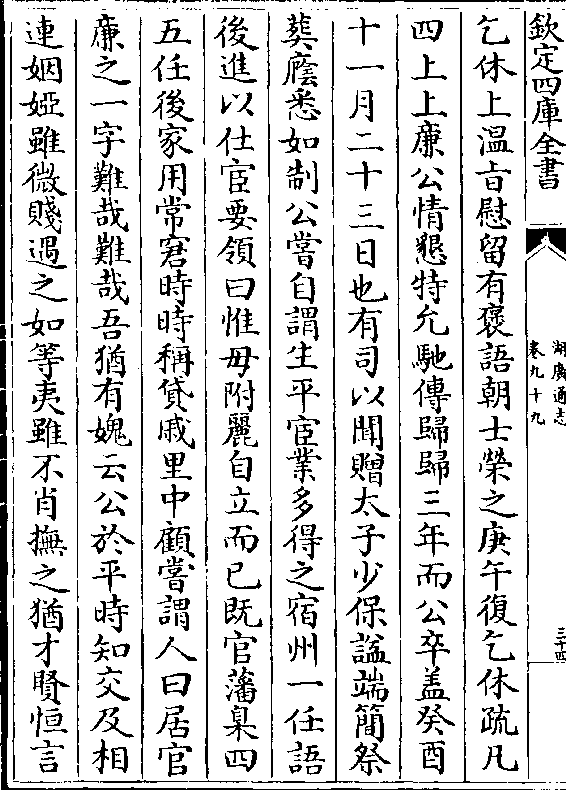 欽定四庫全書
湖廣通志
卷九十九
三十四
乞休上温旨慰留有褒語朝士榮之庚午復乞休疏凡
四上上亷公情懇特允馳傳歸歸三年而公卒盖癸酉
十一月二十三日也有司以聞贈太子少保諡端簡祭
葬廕悉如制公嘗自謂生平宦業多得之宿州一任語
後進以仕宦要領曰惟毋附麗自立而已既官藩臬四
五任後家用常窘時時稱貸戚里中顧嘗謂人曰居官
亷之一字難哉難哉吾猶有媿云公於平時知交及相
連姻婭雖微賤遇之如等夷雖不肖撫之猶才賢恒言